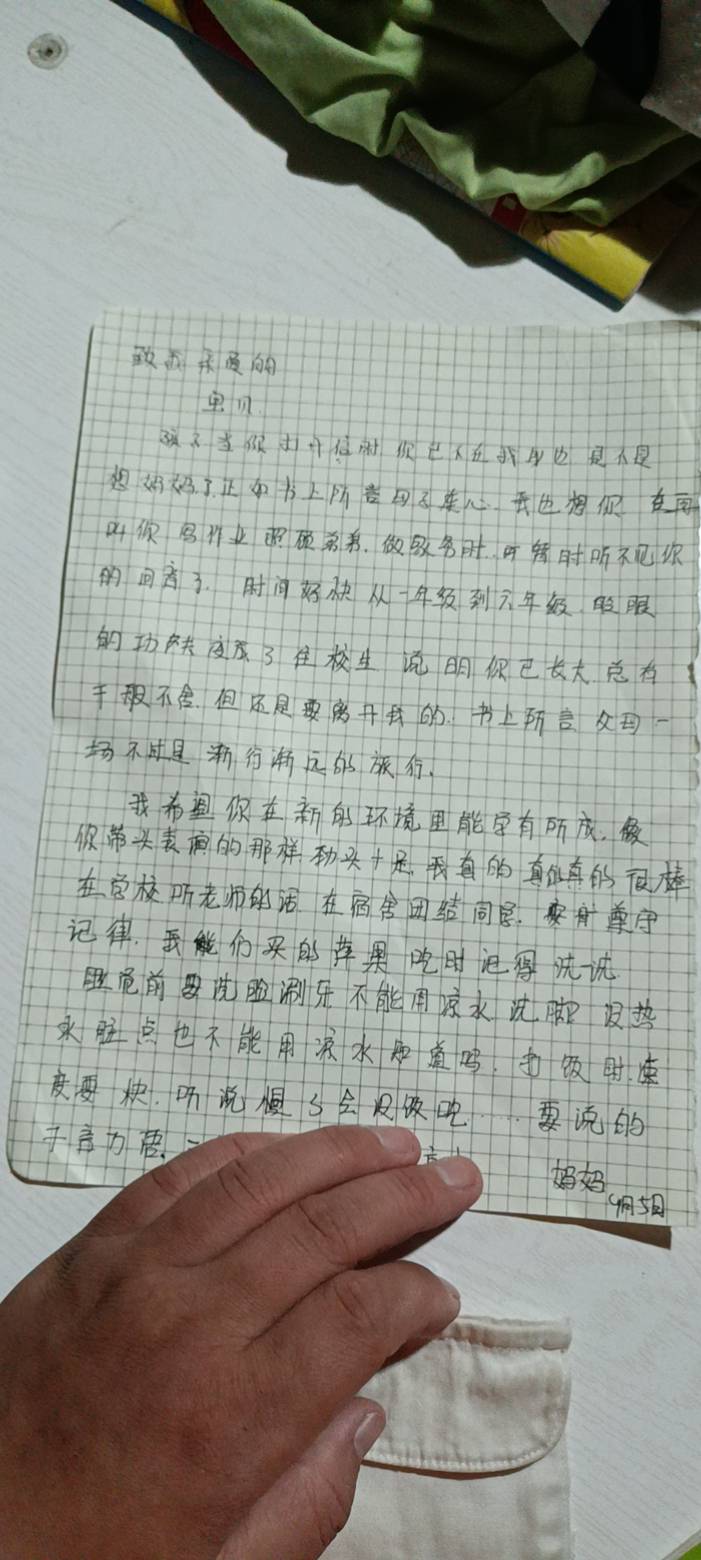 致亲 亲爱的
宝贝.
孩子当你打开信时 你已不在我身边 是不是
想妈妈了正如书上所言母子连心.我也想你 在再
叫你 写作业 照顾弟弟.做家务时.可暂时听不见你
的回音了. 时间好快 从一年级到六年级.眨眼
的功夫 变成了住校生 说明你已长大.总有
千般不舍.但还是要离开我的.书上所言 父母一
场不过是 渐行渐远的旅行.
我希望你在新的环境里能学有所成.像
你带头表演的那样劲头十足.我真的真的真的很棒
在学校听老师的话 在宿舍团结同学. 要时 遵守
记律.我能们买的苹果 吃时记得洗一洗
睡觉前要洗脸涮牙 不能用凉水 洗脚 没热
水 脏点也不能用凉水知道吗.打饭时.速
度要快.听说慢了会没饭吃……要说的
千言万语.
妈妈
9月5日